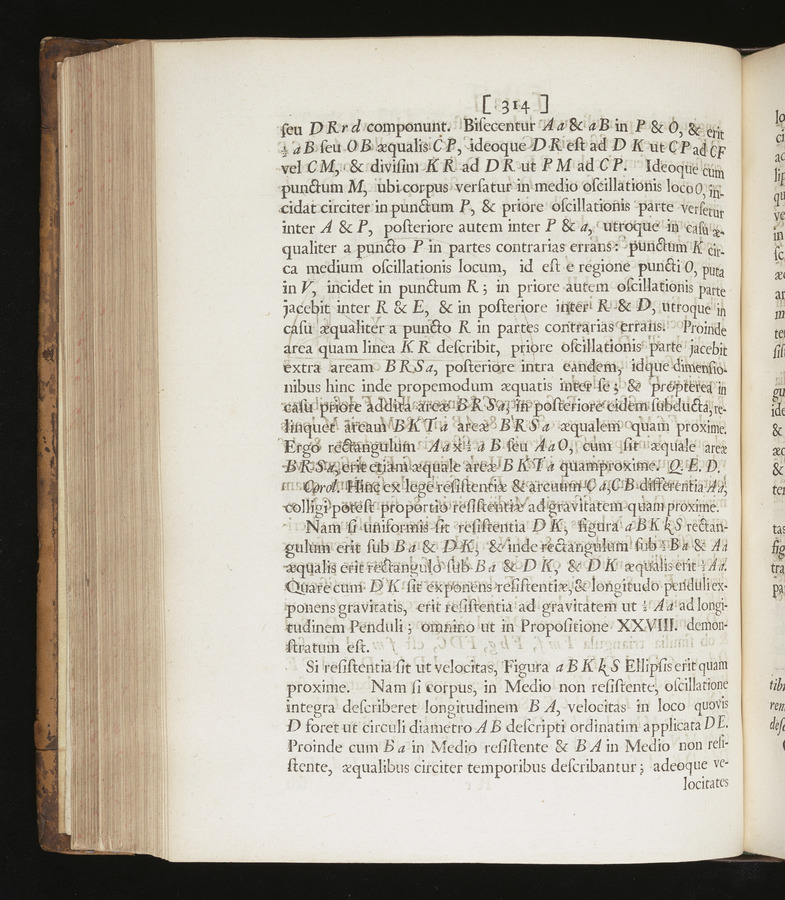 [ 314 ]
ſeu DRrd componunt. Biſecentur Aa & aB in P & O, & erit
½ aB ſeu OB æqualis CP, ideoque DR eſt ad DK ut CP ad CF
vel CM, & diviſim KR ad DR ut PM ad CP. Ideoque cum
punctum M, ubi corpus verſatur in medio oſcillationis loco O, in-
cidat circiter in punctum P, & priore oſcillationis parte verſetur
inter A & P, poſteriore autem inter P & a, utroque in caſu æ-
qualiter a puncto P in partes contrarias errans: punctum K cir-
ca medium oſcillationis locum, id eſt e regione puncti O, puta
in V, incidet in punctum R; in priore autem oſcillationis parte
jacebit inter R & E, & in poſteriore inter R & D, utroque in
caſu æqualiter a puncto R in partes contrarias errans. Proinde
area quam linea KR deſcribit, priore oſcillationis parte jacebit
extra aream BRSa, poſteriore intra eandem, idque dimenſio-
nibus hinc inde propemodum æquatis inter ſe; & propterea in
caſu priore addita areæ BRSa, in poſteriore eidem ſubducta, re-
linquet aream BKTa areæ BRSa æqualem quam proxime.
Ergo rectangulum Aa x ½ aB ſeu AaO, cum ſit æquale areæ
BRSa, erit etiam æquale areæ BKTa quamproxime. Q. E. D.
Corol. Hinc ex lege reſiſtentiæ & arcuum Ca, CB differentia Aa,
colligi poteſt proportio reſiſtentiæ ad gravitatem quam proxime.
Nam ſi uniformis ſit reſiſtentia DK, figura aBKkS rectan-
gulum erit ſub Ba & DK, & inde rectangulum ſub ½ Ba & Aa
æqualis erit rectangulo ſub Ba & DK, & DK æqualis erit ½ Aa.
Quare cum DK ſit exponens reſiſtentiæ, & longitudo penduli ex-
ponens gravitatis, erit reſiſtentia ad gravitatem ut ½ Aa ad longi-
tudinem Penduli; omnino ut in Propoſitione XXVIII. demon-
ſtratum eſt.
Si reſiſtentia ſit ut velocitas, Figura aBKkS Ellipſis erit quam
proxime. Nam ſi corpus, in Medio non reſiſtente, oſcillatione
integra deſcriberet longitudinem BA, velocitas in loco quovis
D foret ut circuli diametro AB deſcripti ordinatim applicata DE.
Proinde cum Ba in Medio reſiſtente & BA in Medio non reſi-
ſtente, æqualibus circiter temporibus deſcribantur; adeoque ve-
locitates